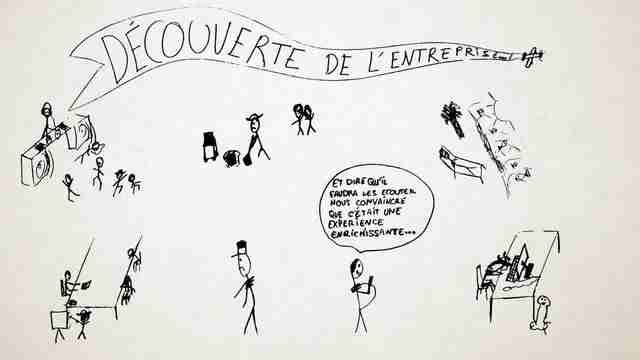 DÉCOUVERTE DE L'ENTREPRISE
ET DIRE QU'IL
FAUDRA LES ECOUTER
NOUS CONVAINCRE
QUE C'ÉTAIT UNE
EXPERIENCE
ENRICHISSANTE...